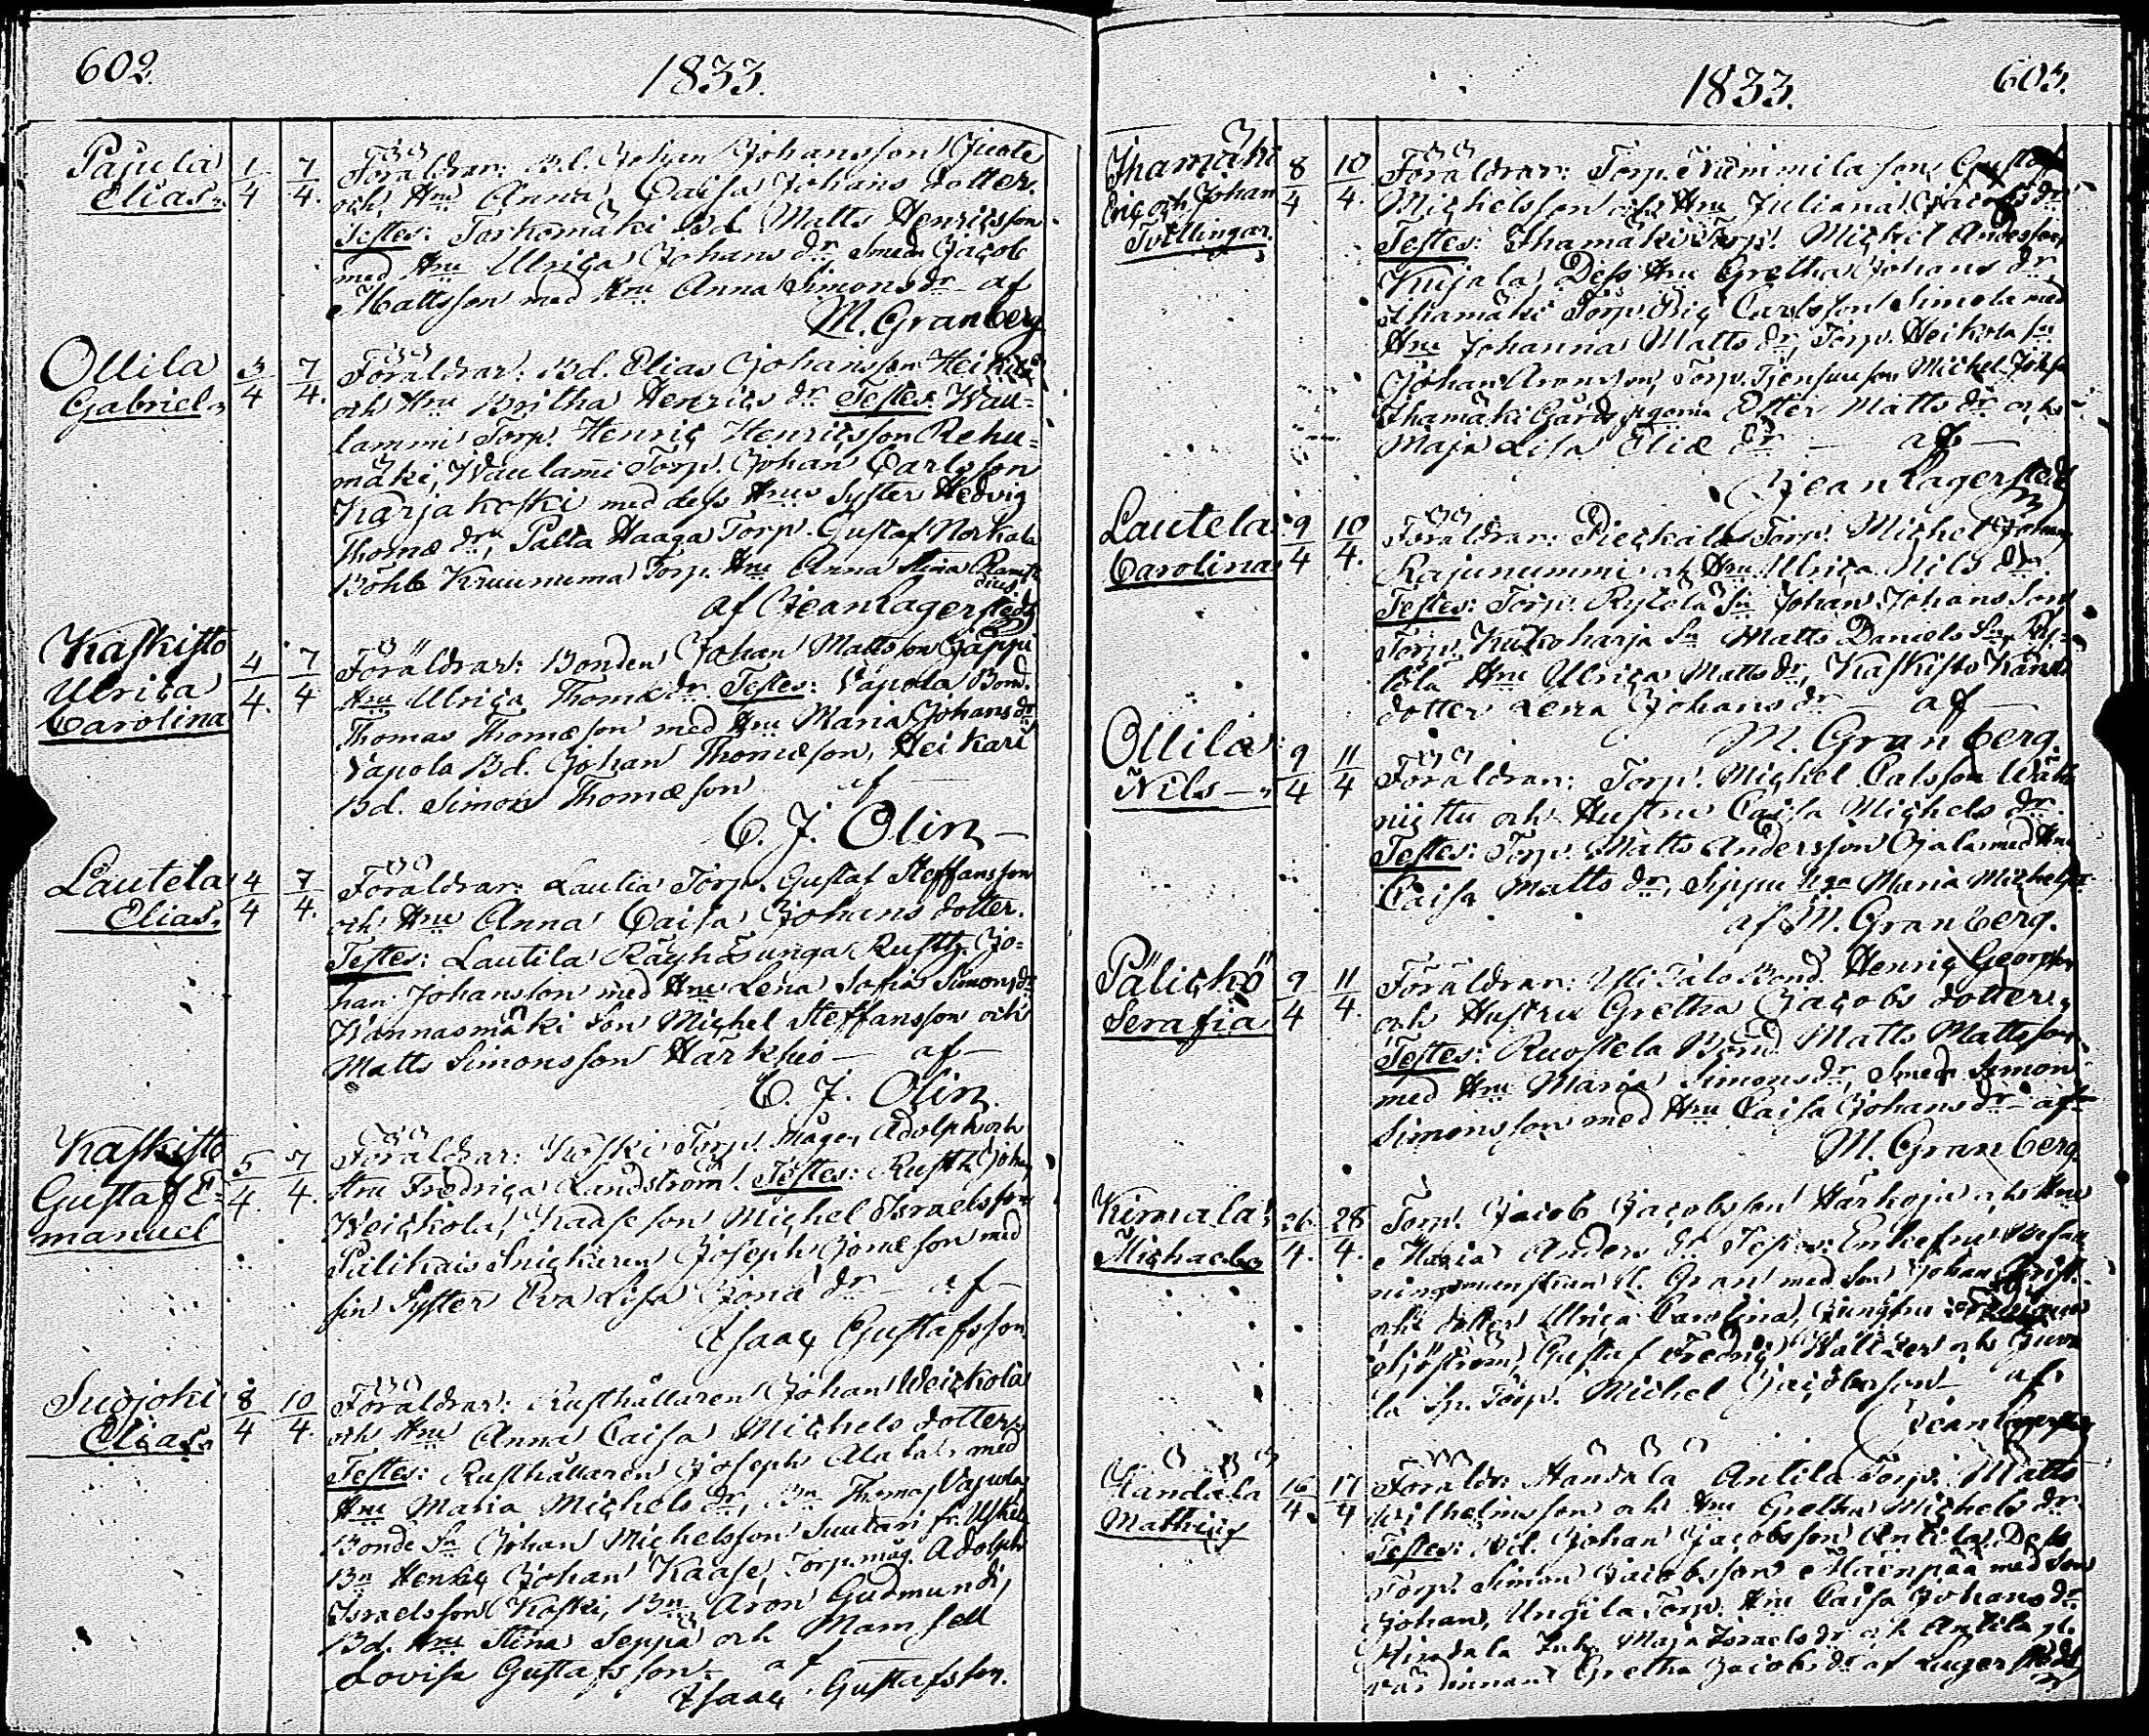 602.
1833.
Pajula
Elias.
1/4
7/4.
Föräldrar: Bd. Johan Johansson
och Hru Anna Caisa Johans dotter.
Testes: Torhomäki Bd. Matts Henricsson
med Hru Ulrica Johans dr, Smed Jacob
Mattsson med Hru Anna Simons dr af
M. Granberg
Ollila
Gabriel
3/4
7/4.
Föräldrar: Bd. Elias Johansson Heikilä
och Hru Britha Henrics dr Testes: Wau=
lammi Torp. Henric Henricsson Rehu=
mäki, Waulami Torp. Johan Carlsson
Karjakoski med dess Hrus Syster Hedvig
Thomæ dr, Palta Haaga Torp. Gustaf Norkala
Böhle Kruunuma Torp. Hru Anna Stina
af Jean Lagerstedt
Kaskisto
Ulrica
Carolina
4/4.
7/4
Föräldrar: Bonden Johan Mattsson Jäppi
Hru Ulrica Thomæ dr. Testes: Vapola Bond.
Thomas Thomæson med Hru Maria Johans dr
Vapola Bd. Johan Thomæson, Heikari
Bd. Simon Thomæson af
C. J. Olin
Lautela
Elias.
4/4
7/4.
Föräldrar: Lautia Torp. Gustaf Steffansson
och Hru Anna Caisa Johans dotter.
Testes: Lautila Räyhäsunga Rusth. Jo=
han Johansson med Hru Lena Safia Simons dr
Wannasmäki Son Michel Steffansson och
Matts Simonsson Härksuo af
C. J. Olin.
Kaskisto
Gustaf E=
manuel
5/4.
7/4.
Föräldrar: Koski Torp. Måge, Adolph och
Hru Fredrica Landström. Testes: Rusth. Joh.
Weickola, Kaase son Michel Israelsson
Pälikäis Snickaren Joseph Jonæson med
sin Syster Eva Lisa Jonæ dr af
Isaac Gustafsson
Suojoki
Elias
8/4
10/4.
Föräldrar: Rusthållaren Johan Weickola
och Hru Anna Caisa Michels dotter
Testes: Rusthållaren Joseph Alatalo med
Hru Maria Michels dr, Bn Thomas Vajula
Bonde Sn Johan Michelsson Suutari fr. Uskela
Bn Henric Johan Kaase, Torp. måg. Adolph
Israelsson Koski, Bn Aron Gudmundi,
Bd. Hru Stina Seppä och Mamsell
Lovisa Gustafsson. af
Isaac Gustafsson.
1833.
603.
Ihamäki
Eric och Johan
Tvillingar.
8/4
10/4.
Föräldrar: Torp. Nummila son Gustaf
Michelsson och Hru Juliana Jacobs dr
Testes: Ihamäki Torp. Michel Andersson
Kujala, Dess Hru Gretha Johans dr,
Ihamäki Torp. Eric Carlsson Simola med
Hru Johanna Matts dr, Torp. Heikola Sn
Johan Aronsson, Torp.
Ihamäki Gårds pigorna Ester Matts dr och
Maja Lisa Eliæ dr af
Jean Lagerstedt
Lautela
Carolina
9/4
10/4.
Föräldrar: Pieckala Torp. Michel Johans
Rajunummi och Hru Ulrica Nils dr.
Testes: Torp. Rytölä Sn Johan Johansson
Torp. Kukoharja Sn Matts Daniels Sn, Ry=
tölä Hru Ulrica Matts dr, Kaskisto
dotter Lena Johans dr af
M. Granberg.
Ollila
Nils
9/4
11/4
Föräldrar: Torp. Michel Calsson
niittu och Hustru Caisa Michels dr.
Testes: Torp. Matts Andersson Ojala med Hru
Caisa Matts dr, Sippu Maria Michels dr
af M. Granberg.
Pälichö
Serafia
9/4
11/4.
Föräldrar: Ylitalo Bond. Henric Georgss.
och Hustru Gretha Jacobs dotter.
Testes: Ruostela Bond. Matts Mattsson
med Hru Maria Simons dr, Smed Simon
Simonsson med Hru Caisa Johans dr af
M. Granberg.
Kimala
Michael
26/4.
28/4.
Torp. Jacob Jacobsson Härkoja och Hru
Maria Anders dr Testes: Enkefru
Gran med Son Johan
och dotter Ulrica Carolina, Jungfru
Sjöström, Gustaf Fredric
la Sn. Torp. Michel Jacobsson af
Jean Lagerstedt
Handala
Mathias
16/4.
17/4
Föräldr: Handala Antila Torp. Matts
Wilhelmsson och Hru Gretha Michels dr.
Testes: Bd. Johan Jacobsson Antila, Dess
Torp. Simon Jacobsson Mäenpää med Son
Johan, Ungila Torp. Hru Caisa Johans dr
Handala Inh. Maja Israels dr och Antila gl.
värdinnan Gretha Jacobs dr af Lagerstedt